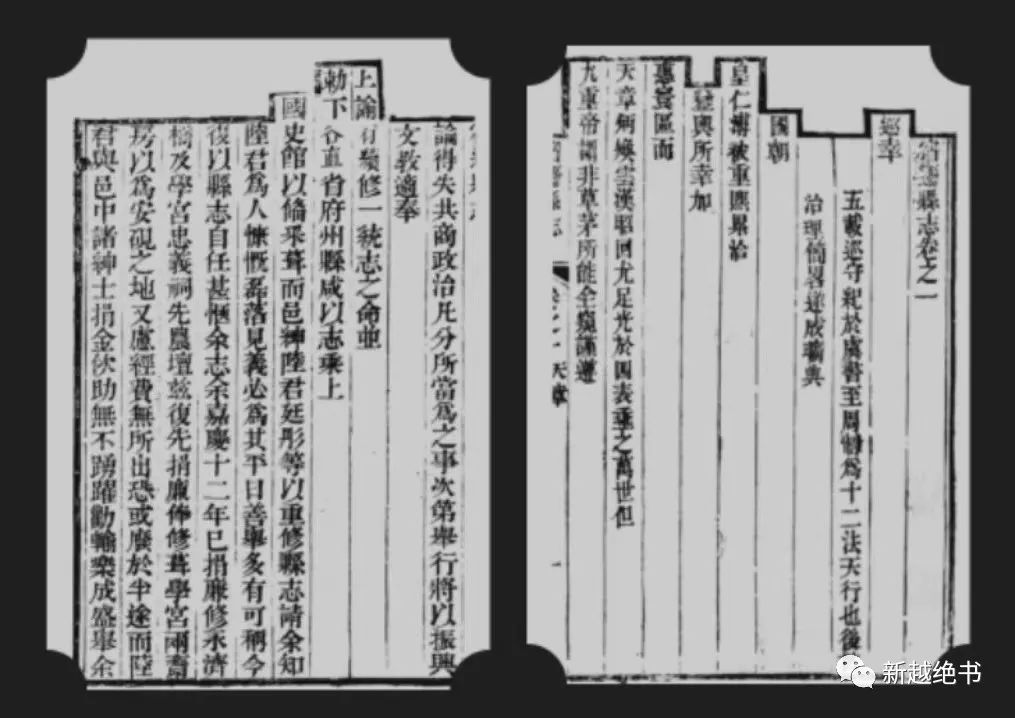 縣志卷之一
巡幸
五載巡守紀於虞書至周制為十二法天行也後
治理簡畧遂成曠典
國朝
皇仁溥被重熙累洽
鑾輿所幸加
惠寰區而
天章炳煥雲漢昭回尤足光於四表垂之萬世但
九重帝謂非草茅所能全窺謹遵
縣志 卷之一 天章 一
論得失共商政治凡分所當為之事次第舉行將以振興
文教適奉
上諭有續修一統志之命並
勅下各直省府州縣咸以志乘上
國史館以備采葺而邑紳陸君廷彤等以重修縣志請余知
陸君為人慷慨磊落見義必為其平日善舉多有可稱今
復以縣志自任甚愜余志余嘉慶十二年已捐廉修永濟
橋及學宮忠義祠先農壇茲復先捐廉俸修葺學宮兩齋
房以為安硯之地又慮經費無所出恐或廢於半途而陸
君與邑中諸紳士捐金佽助無不踴躍勸輸樂成盛舉余
新越绝书